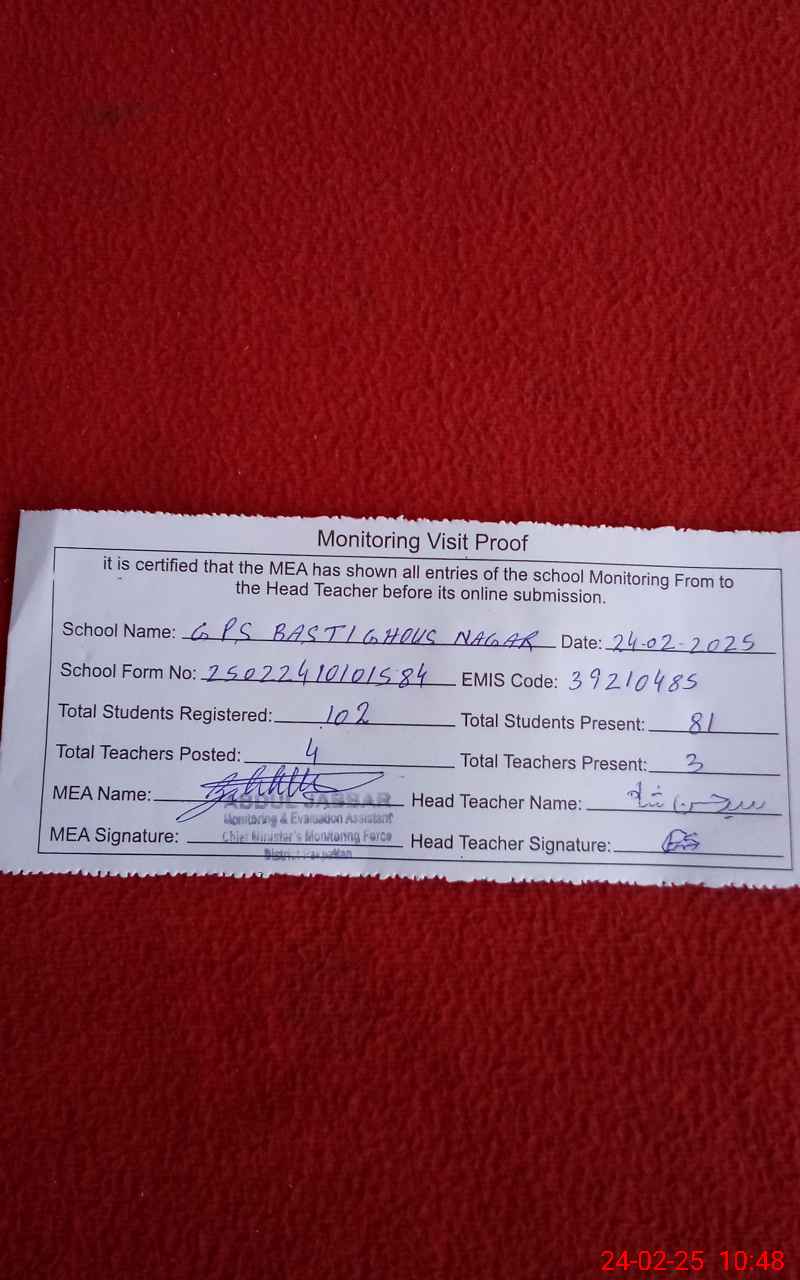 Monitoring Visit Proof
it is certified that the MEA has shown all entries of the school Monitoring From to
the Head Teacher before its online submission.
School Name: GPS BASTI GHOUS NAGAR Date: 24-02-2025
School Form No: 25022410101584 EMIS Code: 39210485
Total Students Registered: 102 Total Students Present: 81
Total Teachers Posted: 4 Total Teachers Present: 3
MEA Name: Head Teacher Name:
ABDUL JABBAR
Monitoring & Evaluation Assistant
MEA Signature: Head Teacher Signature:
Chief Minister's Monitoring Force
District Pakpattan
24-02-25 10:48